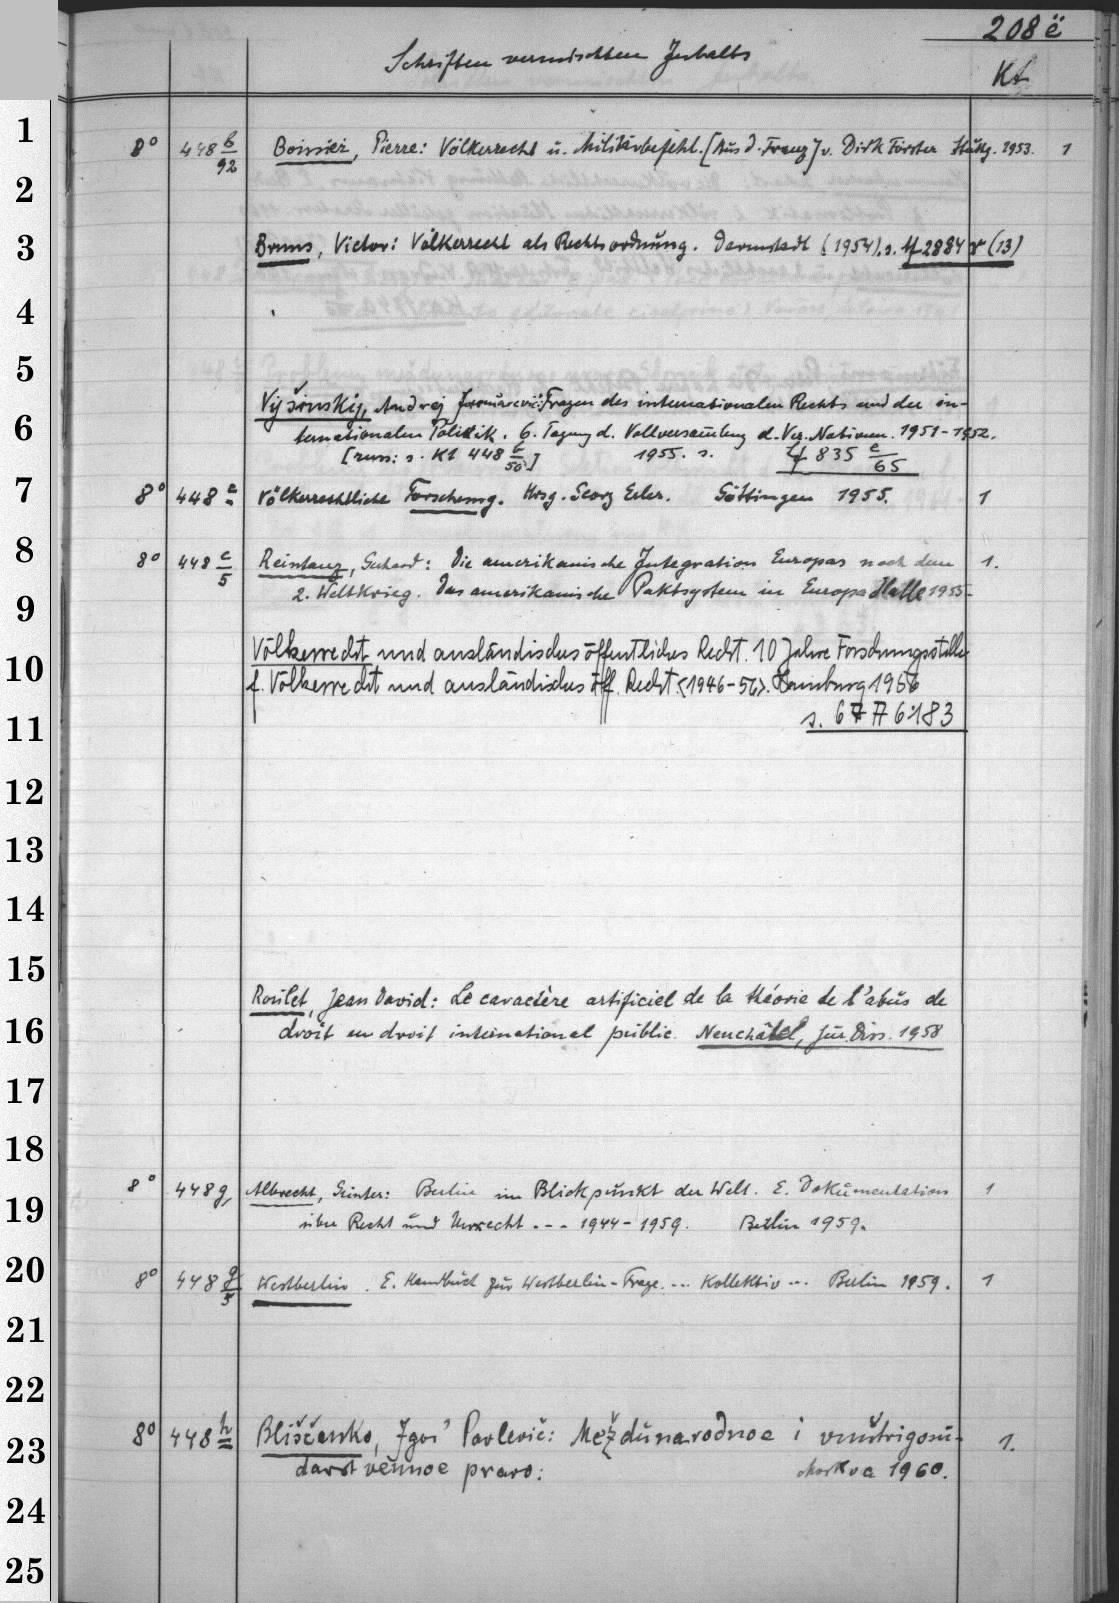 208 ë
Schriften vermischten Inhalts
Kt
1
8° 448 b/92 Boissier, Pierre: Völkerrecht u. Militärbefehl. [Aus d. Franz.] v. Dirk Forster Stuttg. 1953. 1
2
3
Bruns, Victor: Völkerrecht als Rechtsordnung. Darmstadt (1954). s. 2884 r (13)
4
5
Vyšinskij, Andrej Januarevič: Fragen des internationalen Rechts und der in-
6
ternationalen Politik. 6. Tagung d. Vollversamlung d. Ver. Nationen. 1951-1952.
[russ: s. Kt 448 b/50] 1955. s. 835 c/65
7
8° 448 c Völkerrechtliche Forschung. Hrsg. Georg Erler. Göttingen 1955. 1
8
8° 448 c/5 Reintanz, Gerhard: Die amerikanische Integration Europas nach dem 1.
9
2. Weltkrieg. Das amerikanische Paktsystem in Europa Halle 1955
10
Völkerrecht und ausländisches öffentliches Recht. 10 Jahre Forschungsstelle
f. Völkerrecht und ausländisches öff. Recht <1946-56>. Hamburg 1956
11
s. 67 A 6183
12
13
14
15
Roulet, Jean David: Le caractère artificiel de la théorie de l'abus de
16
droit en droit international public. Neuchâtel, jur. Diss. 1958
17
18
8° 448 g, Albrecht, Günter: Berlin im Blickpunkt der Welt. E. Dokumentation 1
19
über Recht und Unrecht . - - 1944-1959. Berlin 1959.
20
8° 448 g/5 Westberlin. E. Handbuch zur Westberlin-Frage. ... Kollektiv ... Berlin 1959. 1
21
22
23
8° 448 h Bliščenko, Igor' Pavlevič: Meždunarodnoe i vnutrigosu- 1.
darstvennoe pravo: Moskva 1960.
24
25